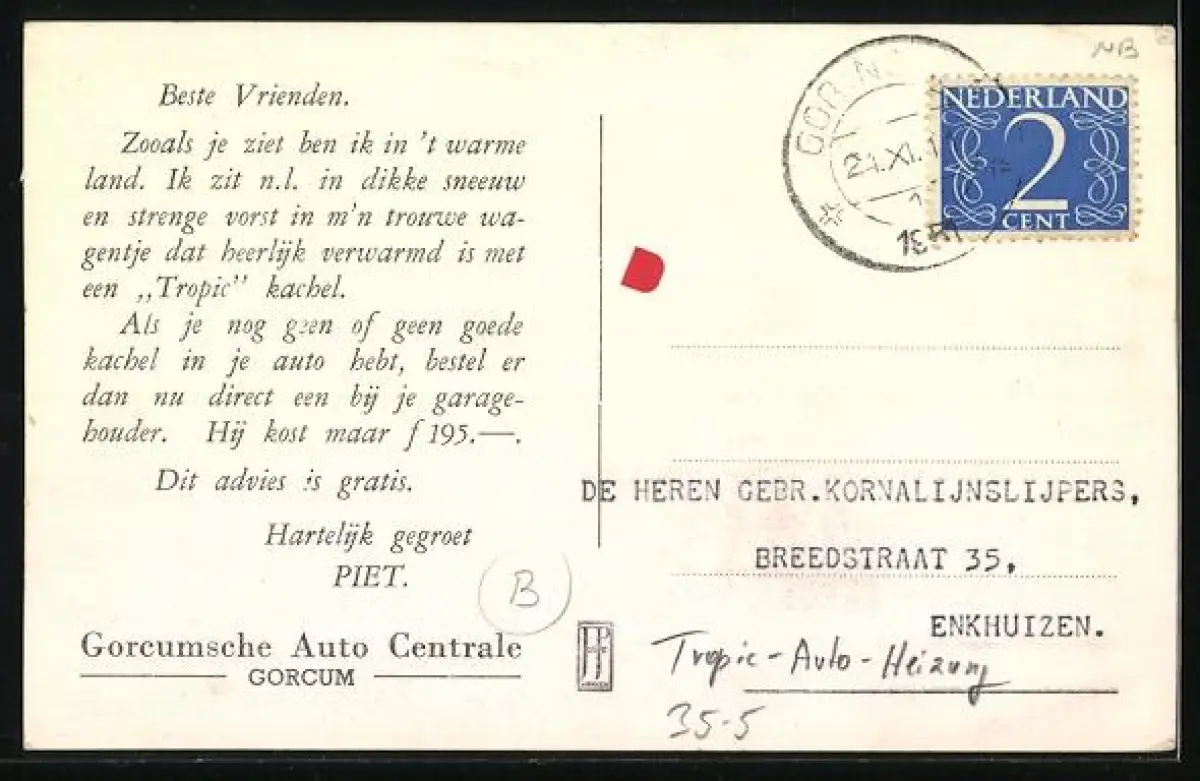 Beste Vrienden.
Zooals je ziet ben ik in 't warme
land. Ik zit n.l. in dikke sneeuw
en strenge vorst in m'n trouwe wa-
gentje dat heerlijk verwarmd is met
een „Tropic” kachel.
Als je nog geen of geen goede
kachel in je auto hebt, bestel er
dan nu direct een bij je garage-
houder. Hij kost maar f 195.—.
Dit advies is gratis.
Hartelijk gegroet
PIET.
Gorcumsche Auto Centrale
GORCUM
B
NB
NEDERLAND
2
CENT
DE HEREN GEBR.KORNALIJNSLIJPERS,
BREEDSTRAAT 35,
ENKHUIZEN.
Tropic-Auto-Heizung
35-5